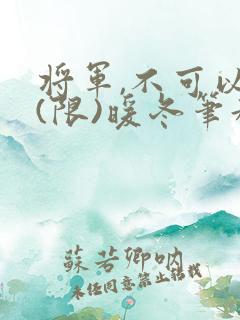 将军,不可以
(限)暖冬笔
蘇若卿呐
未经同意禁止转载